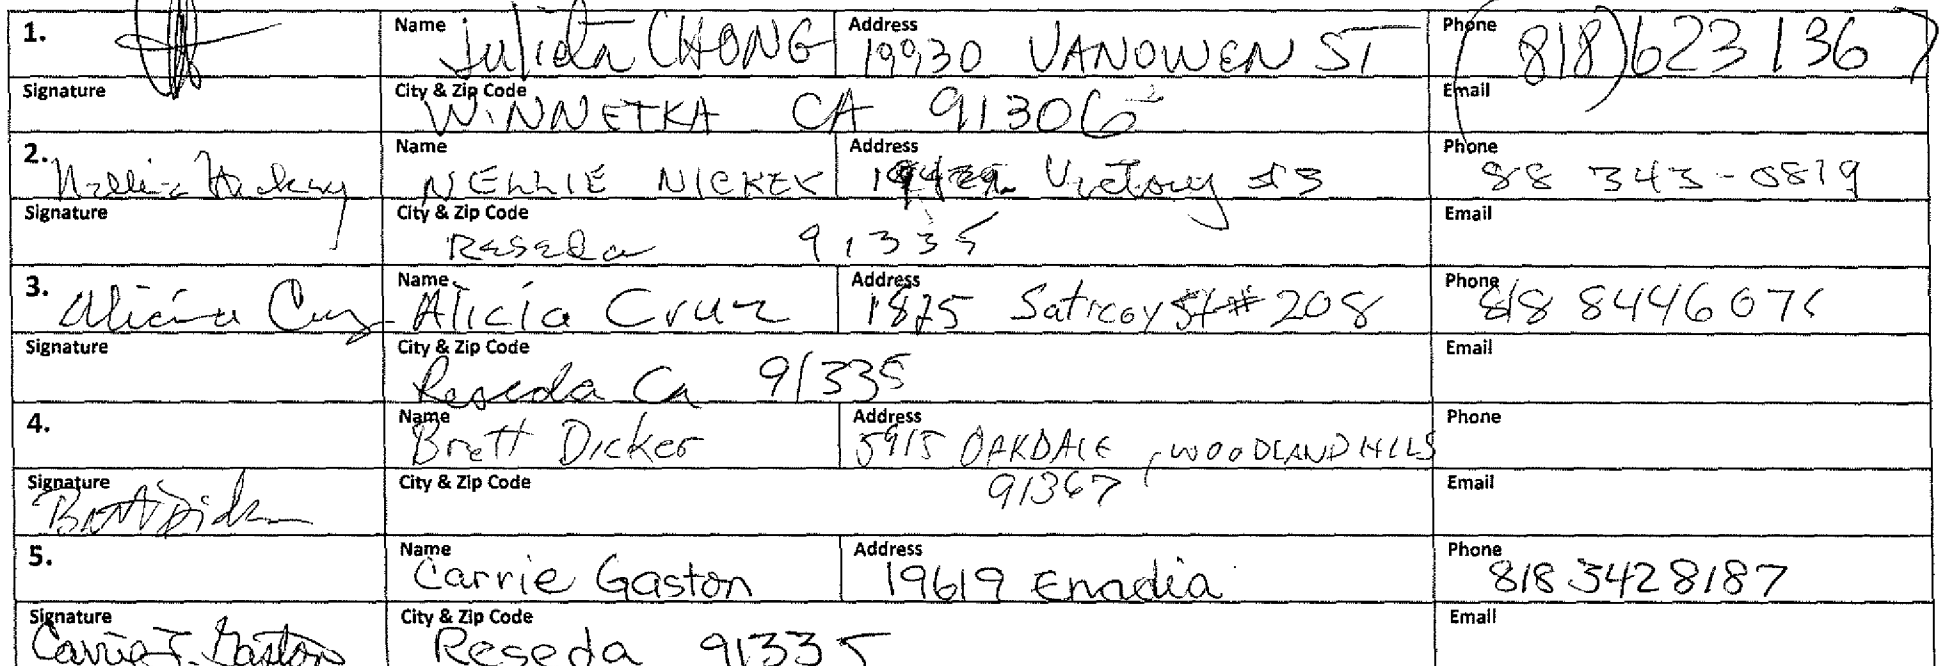 1. Name Julieta CHONG Address 19930 VANOWEN ST Phone (818) 623 1367
Signature City & Zip Code WINNETKA CA 91306 Email
2. Name NELLIE Address Victory Phone 88 343-0819
Signature City & Zip Code Reseda 91335 Email
3. Alicia Cruz Name Alicia Cruz Address Saticoy St # 208 Phone 818
Signature City & Zip Code Reseda Ca 91335 Email
4. Name Brett Dicker Address 5915 OAKDALE, WOODLAND HILLS Phone
Signature Brett Dicker City & Zip Code 91367 Email
5. Name Carrie Gaston Address 19619 Enadia Phone 818 342 8187
Signature Carrie J. Gaston City & Zip Code Reseda 91335 Email